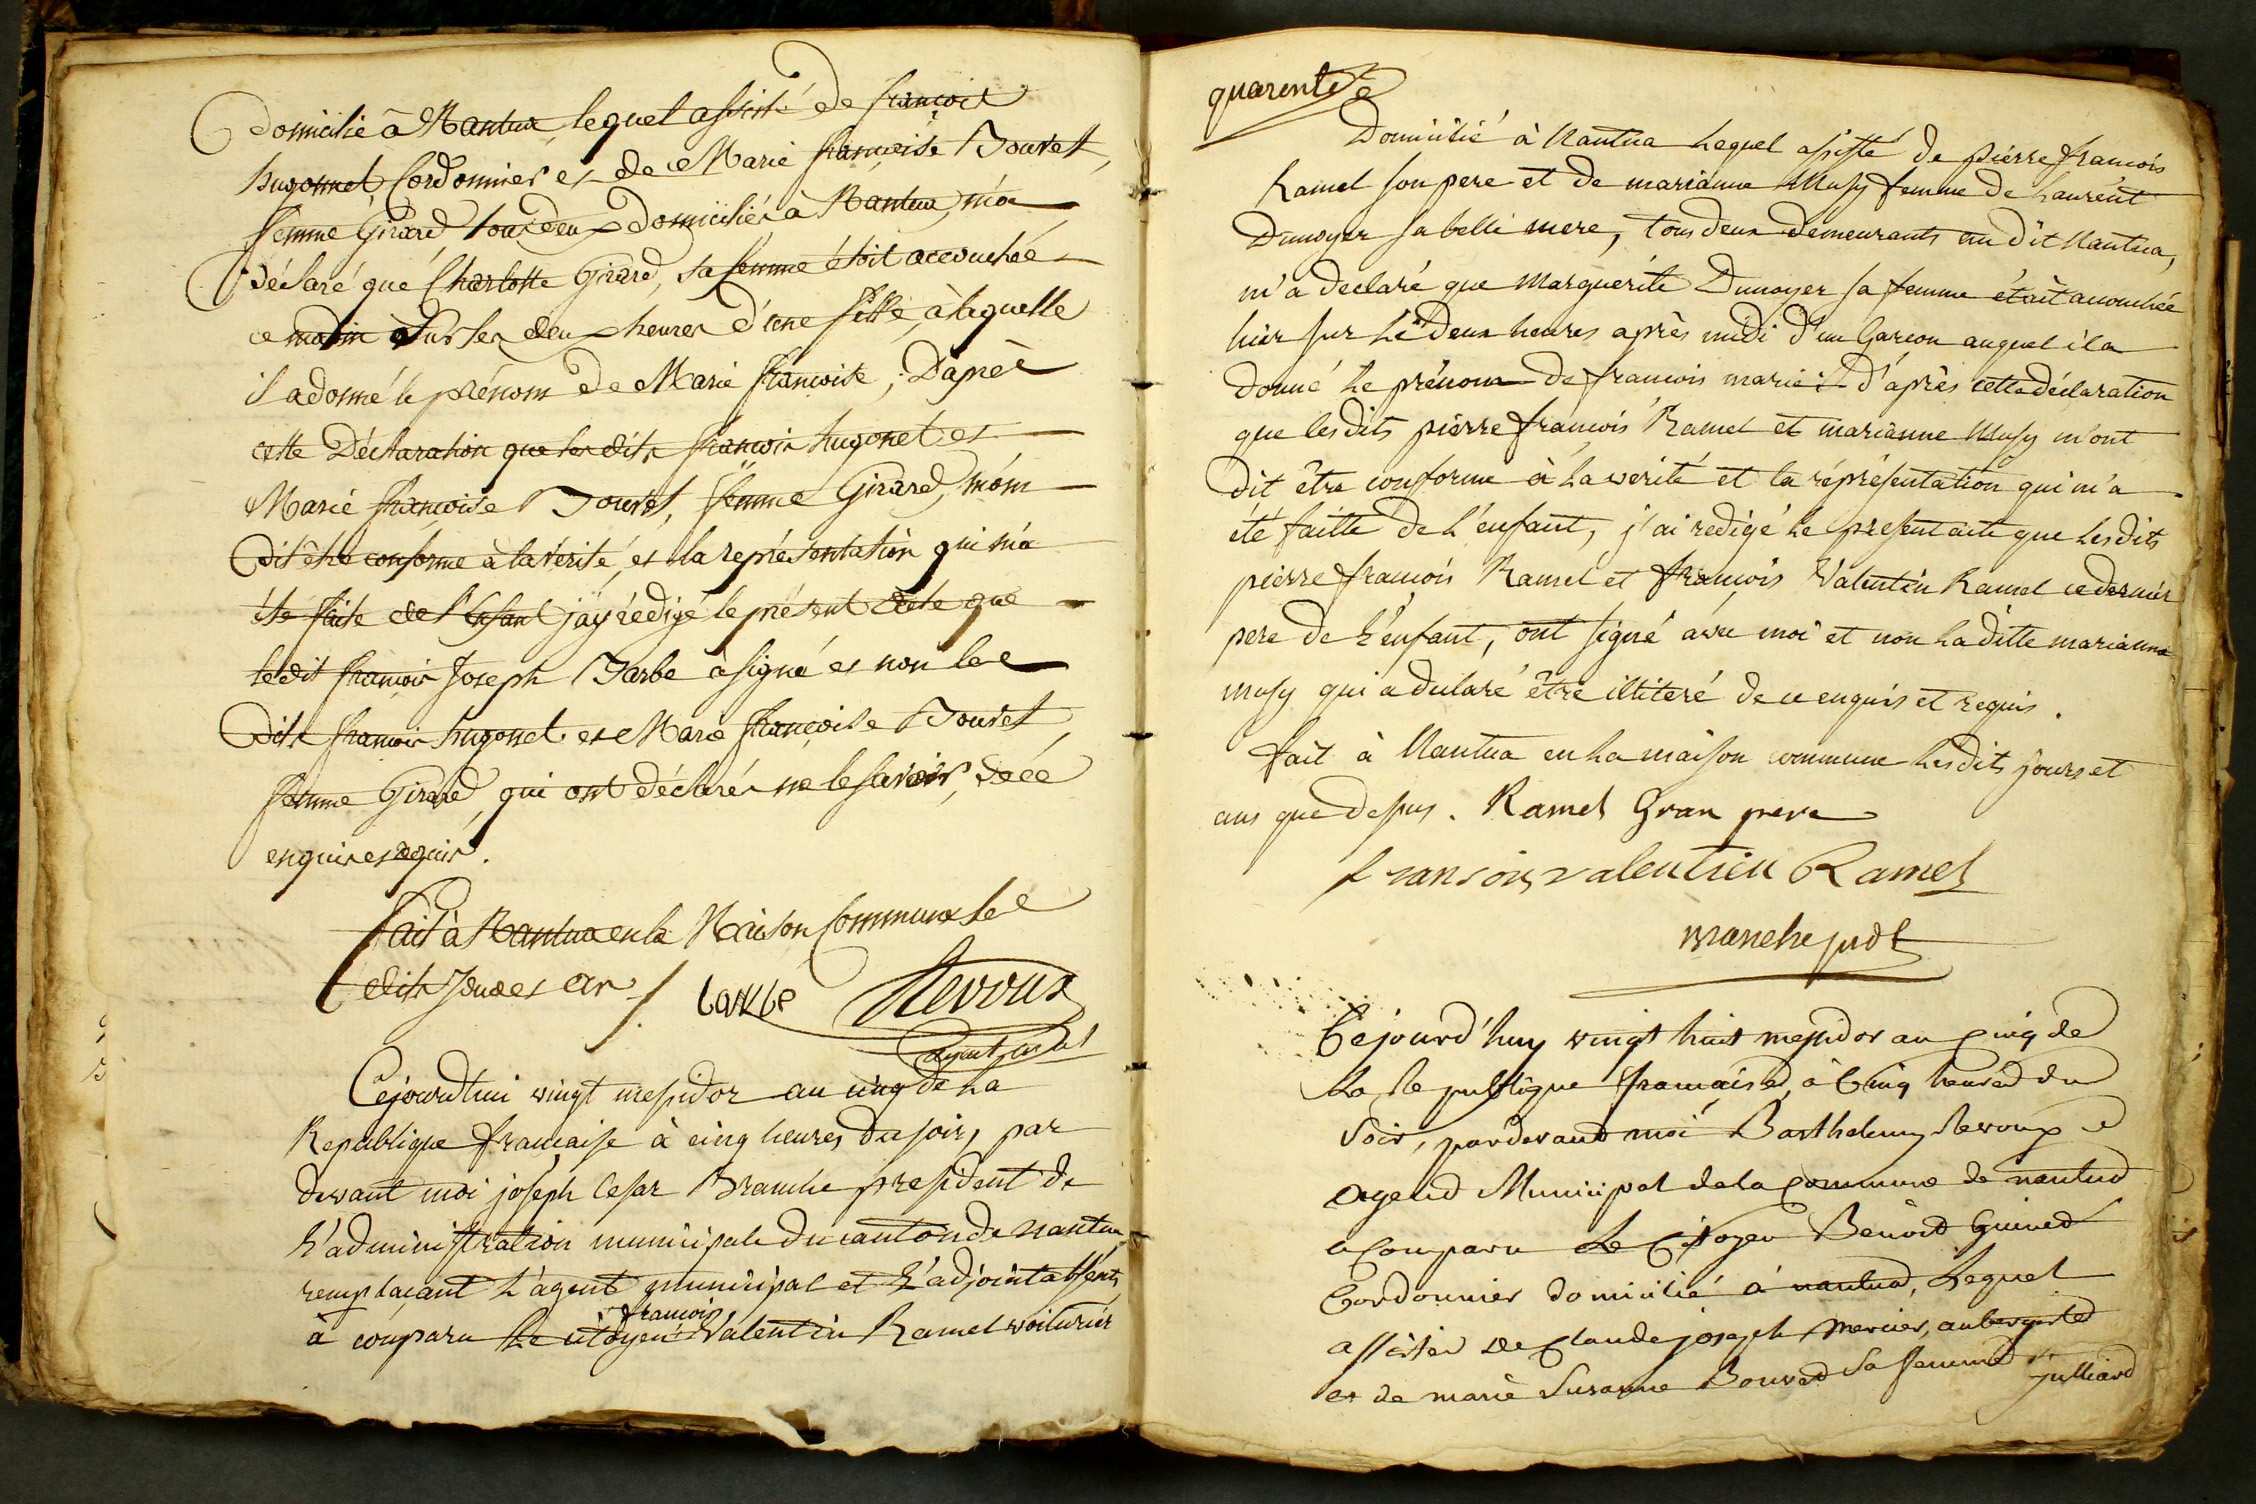 domicilié à Nantua, lequel assisté de françois
hugonnet, Cordonnier et de Marie françoise Jouvet,
femme Girard tous deux domiciliés à Nantua, m'a
déclaré que Charlotte Girard, sa femme étoit accouchée
ce matin sur les deux heures d'une fille, à laquelle
il a donné le prénom de Marie françoise ; D'après
cette Déclaration que les dits françois hugonet et
Marie françoise Jouvet, femme Girard, m'ont
dit être conforme à la vérité, et la représentation qui m'a
été faite de l'Enfant j'ay rédigé le présent acte que
ledit françois Joseph Barbe à signé et non les
Dits françois hugonet et Marie françoise Jouvet,
femme Girard, qui ont déclarés ne le savoir, de ce
enquis et requis.
Fait à Nantua en la Maison Commune les
dits Jour et an /. barbe Nevoux
agent mpal
Cejourdhui vingt messidor an cinq de la
Republique française à cinq heures du soir, par
devant moi joseph Cesar Branche president de
l'administration municipale du canton de nantua
remplaçant l'agent municipal et l'adjoint absents,
à comparu le citoyen françois Valentin Ramel voiturier
quarente
Domicilié à Nantua lequel assisté de pierre francois
Ramel son pere et de marianne Musy femme de Laurent
Dunoyer sa belle mere, tous deux demeurants au dit Nantua,
m'a declaré que Marguerite Dunoyer sa femme était accouchée
hier sur les deux heures après midi d'un Garcon auquel il a
donné le prénom de francois marie : d'après cette déclaration
que lesdits pierre francois Ramel et marianne Musy m'ont
dit être conforme à la verité et la réprésentation qui m'a
été faitte de l'enfant, j'ai redigé le present acte que lesdits
pierre françois Ramel et françois Valentin Ramel ce dernier
pere de l'enfant, ont signé avec moi et non laditte marianne
musy qui a declaré être illiteré de ce enquis et requis.
fait à Nantua en la maison commune lesdits jours et
ans que dessus. Ramel Gran pere
fransois valentien Ramel
Branche
Cejourd'huy vingt huit messidor an cinq de
la Republique française, à Cinq heures du
Soir, pardevant moi Barthelemy Nevoux
agend Municipal de la Commune de nantua
a Comparu Le Citoyen Benoit Guinet
Cordonnier domicilié à nantua, Lequel
assister de Claude joseph Mercier, aubergiste
et de marie Susanne Bouvard sa femme Julliard